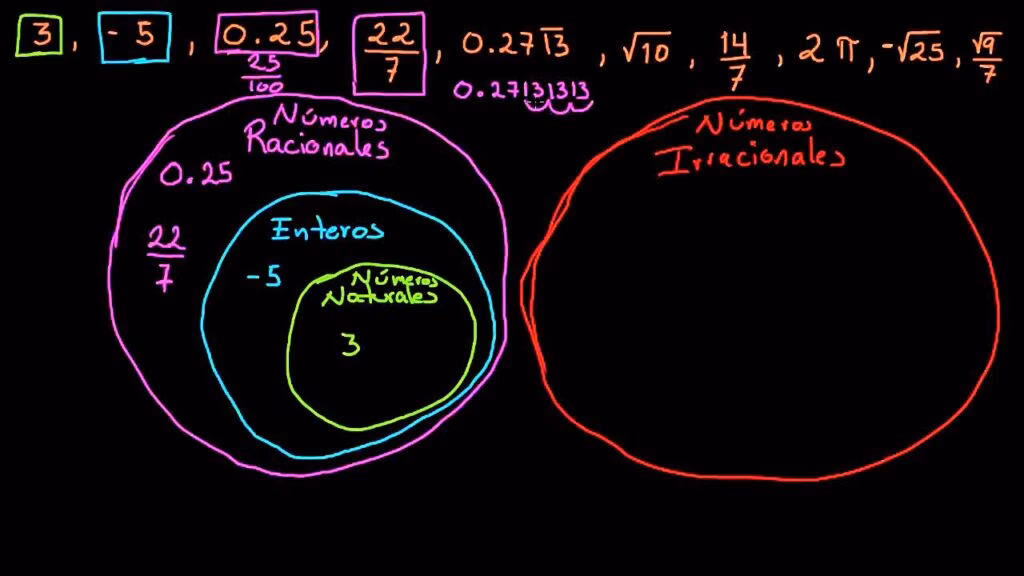 3, -5, 0.25, 22/7, 0.27\overline{13}, √10, 14/7, 2π, -√25, √9/7
25/100
0.27131313
Números
Racionales
0.25
22/7
Enteros
-5
Números
Naturales
3
Números
Irracionales